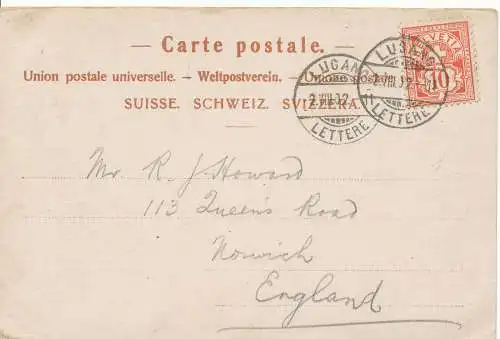 — Carte postale. —
Union postale universelle. — Weltpostverein. — Unione postale
SUISSE. SCHWEIZ. SVIZZERA.
HELVETIA
10
LUGANO
2.VIII.02. 11
LETTERE
LUGANO
LETTERE
Mr. R. J. Howard
113 Queen's Road
Norwich
England